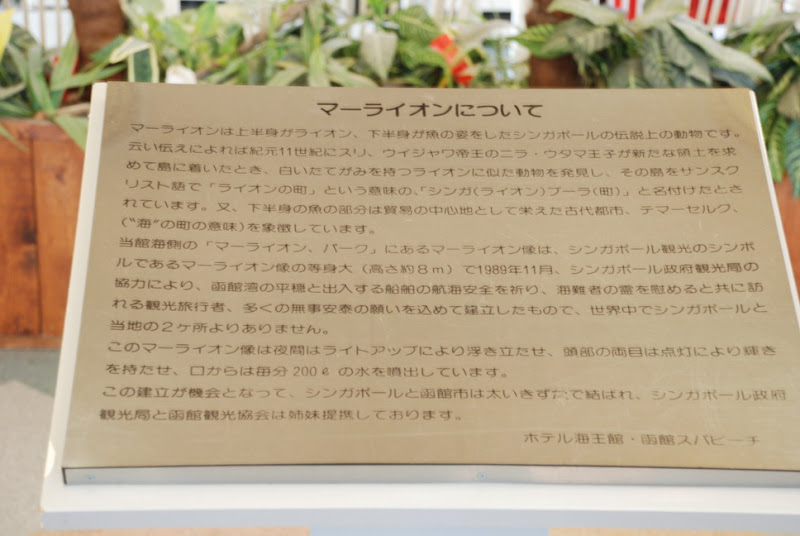 マーライオンについて
マーライオンは上半身がライオン、下半身が魚の姿をしたシンガポールの伝説上の動物です。
云い伝えによれば紀元11世紀にスリ、ウイジャワ帝王のニラ・ウタマ王子が新たな領土を求
めて島に着いたとき、白いたてがみを持つライオンに似た動物を発見し、その島をサンスク
リスト語で「ライオンの町」という意味の、「シンガ(ライオン)プーラ(町)」と名付けたとさ
れています。又、下半身の魚の部分は貿易の中心地として栄えた古代都市、テマーセルク、
(“海”の町の意味)を象徴しています。
当館海側の「マーライオン、パーク」にあるマーライオン像は、シンガポール観光のシンボ
ルであるマーライオン像の等身大(高さ約8m)で1989年11月、シンガポール政府観光局の
協力により、函館湾の平穏と出入する船舶の航海安全を祈り、海難者の霊を慰めると共に訪
れる観光旅行者、多くの無事安泰の願いを込めて建立したもので、世界中でシンガポールと
当地の2ヶ所よりありません。
このマーライオン像は夜間はライトアップにより浮き立たせ、頭部の両目は点灯により輝き
を持たせ、口からは毎分200ℓの水を噴出しています。
この建立が機会となって、シンガポールと函館市は太いきずなで結ばれ、シンガポール政府
観光局と函館観光協会は姉妹提携しております。
ホテル海王館・函館スパビーチ